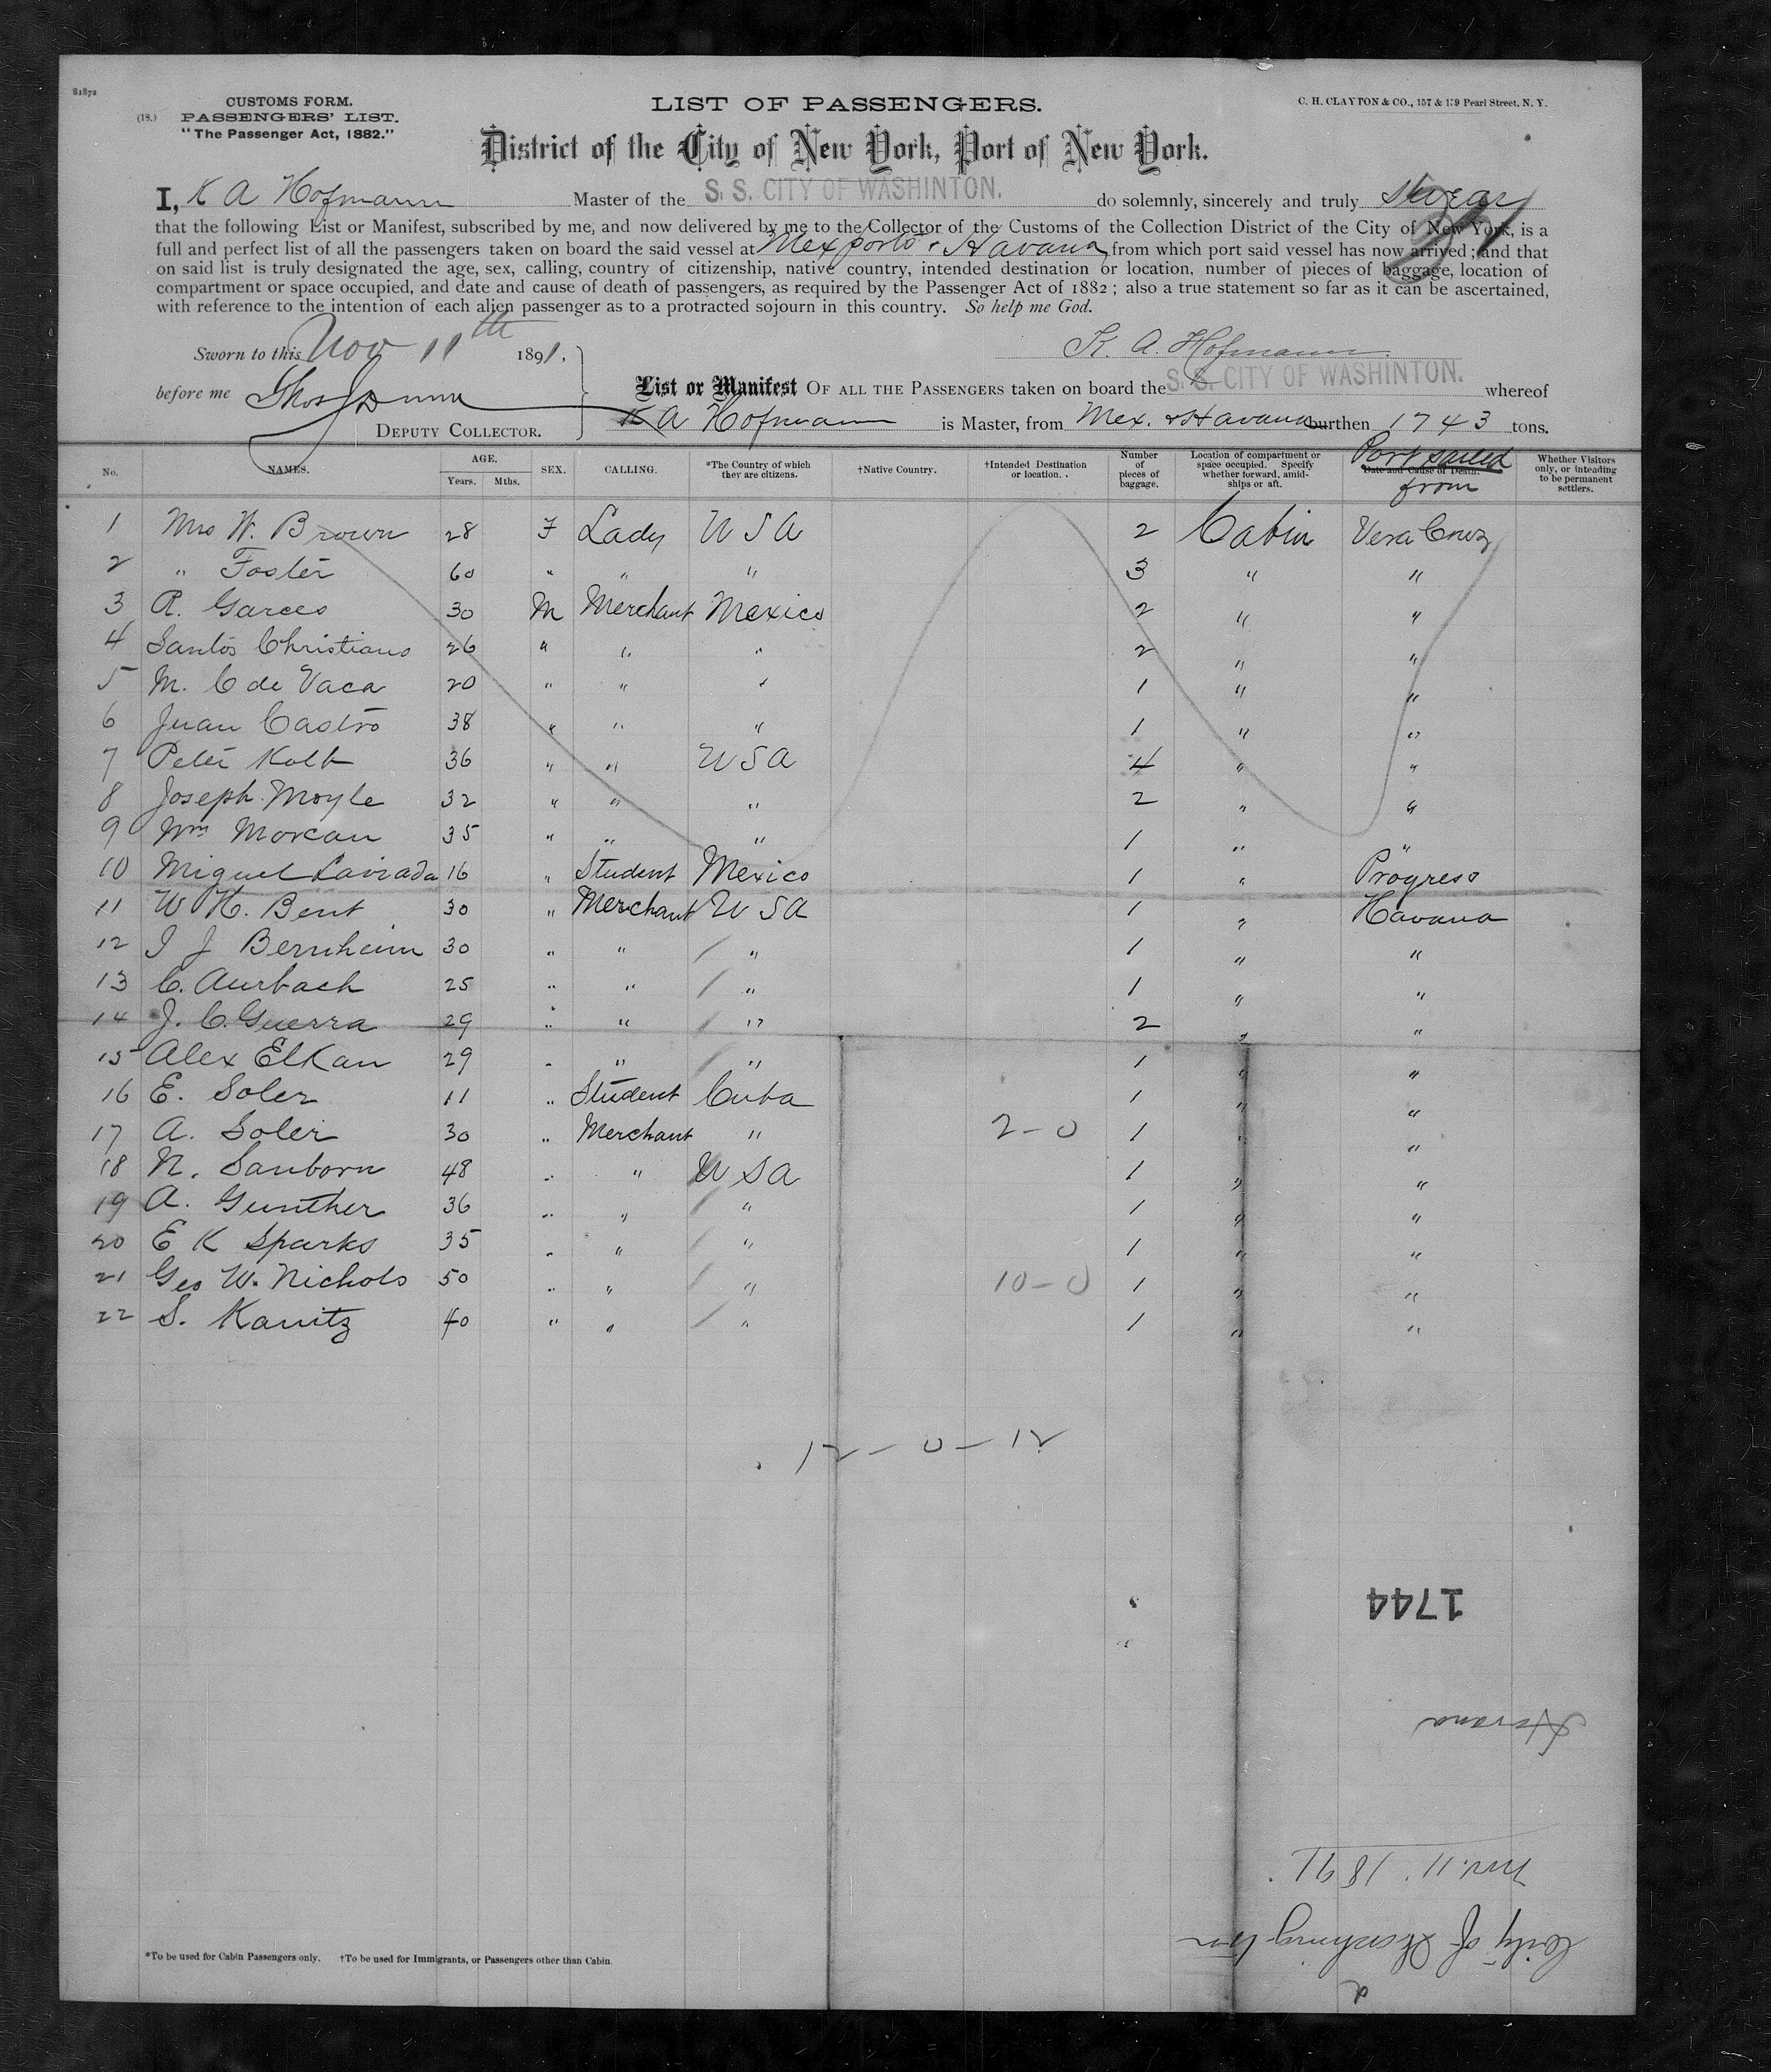 81872
CUSTOMS FORM.
(18.) PASSENGERS' LIST.
"The Passenger Act, 1882."
LIST OF PASSENGERS.
C. H. CLAYTON & CO., 157 & 159 Pearl Street, N. Y.
District of the City of New York, Port of New York.
I, K A Hofmann Master of the S. S. CITY OF WASHINTON. do solemnly, sincerely and truly swear
that the following List or Manifest, subscribed by me, and now delivered by me to the Collector of the Customs of the Collection District of the City of New York, is a
full and perfect list of all the passengers taken on board the said vessel at Mex ports & Havana from which port said vessel has now arrived; and that
on said list is truly designated the age, sex, calling, country of citizenship, native country, intended destination or location, number of pieces of baggage, location of
compartment or space occupied, and date and cause of death of passengers, as required by the Passenger Act of 1882; also a true statement so far as it can be ascertained,
with reference to the intention of each alien passenger as to a protracted sojourn in this country. So help me God.
Sworn to this Nov 11th 1891.
K. A. Hofmann
before me Thos J Dunn
DEPUTY COLLECTOR.
List or Manifest OF ALL THE PASSENGERS taken on board the S. S. CITY OF WASHINTON. whereof
K A Hofmann is Master, from Mex. & Havana burthen 1743 tons.
No. NAMES. AGE. Years. Mths. SEX. CALLING. *The Country of which they are citizens. †Native Country. †Intended Destination or location. Number of pieces of baggage. Location of compartment or space occupied. Specify whether forward, amidships or aft. Date and Cause of Death. Port sailed from Whether Visitors only, or intending to be permanent settlers.
1 Mrs W. Brown 28 F Lady USA 2 Cabin Vera Cruz
2 " Foster 60 " " " 3 " "
3 R. Garces 30 M Merchant Mexico 2 " "
4 Santos Christians 26 " " " 2 " "
5 M. C de Vaca 20 " " " 1 " "
6 Juan Castro 38 " " " 1 " "
7 Peter Kolb 36 " " USA 4 " "
8 Joseph Moyle 32 " " " 2 " "
9 Wm Morcan 35 " " " 1 " "
10 Miguel Laviada 16 " Student Mexico 1 " Progreso
11 W H. Bent 30 " Merchant USA 1 " Havana
12 I J Bernheim 30 " " " 1 " "
13 C. Aurbach 25 " " " 1 " "
14 J. C. Guerra 29 " " " 2 " "
15 Alex Elkan 29 " " " 1 " "
16 E. Soler 11 " Student Cuba 1 " "
17 A. Soler 30 " Merchant " 2-0 1 " "
18 N. Sanborn 48 " " USA 1 " "
19 A. Gunther 36 " " " 1 " "
20 E K Sparks 35 " " " 1 " "
21 Geo W. Nichols 50 " " " 10-0 1 " "
22 S. Kanitz 40 " " " 1 " "
12-0-12
1744
Havana
Nov. 11. 1891.
City of Washington
*To be used for Cabin Passengers only. †To be used for Immigrants, or Passengers other than Cabin.